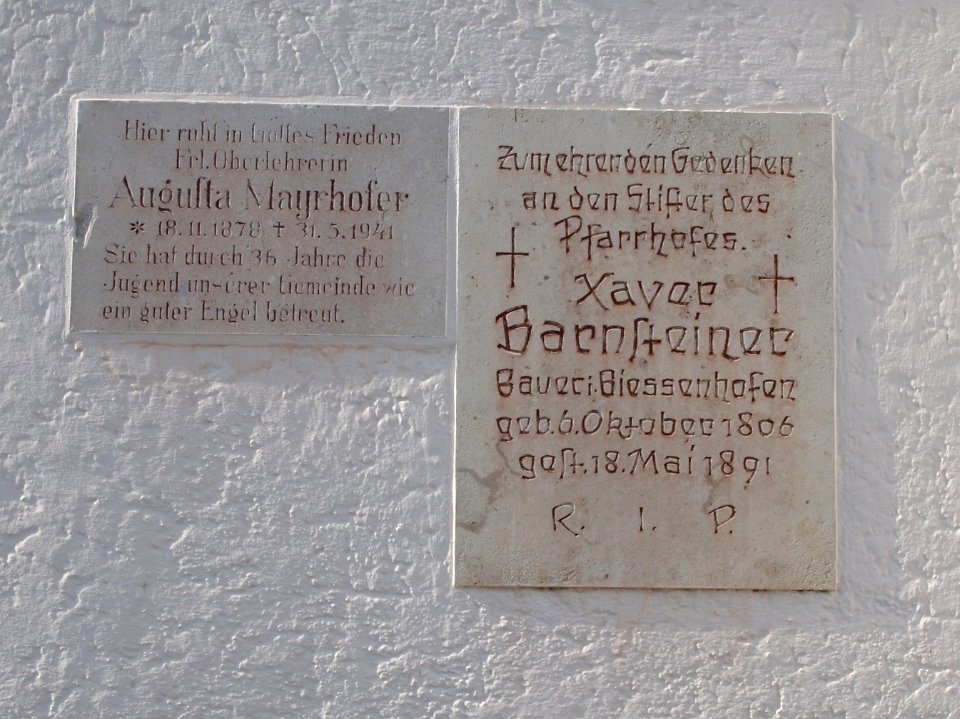 Hier ruht in Gottes Frieden
Frl. Oberlehrerin
Auguſta Mayrhofer
* 18.11.1878 † 31.5.1941
Sie hat durch 36 Jahre die
Jugend unserer Gemeinde wie
ein guter Engel betreut.
Zum ehrenden Gedenken
an den Stifter des
Pfarrhofes.
Xaver
Barnſteiner
Bauer i. Biessenhofen
geb. 6. Oktober 1806
geſt. 18. Mai 1891
R. I. P.